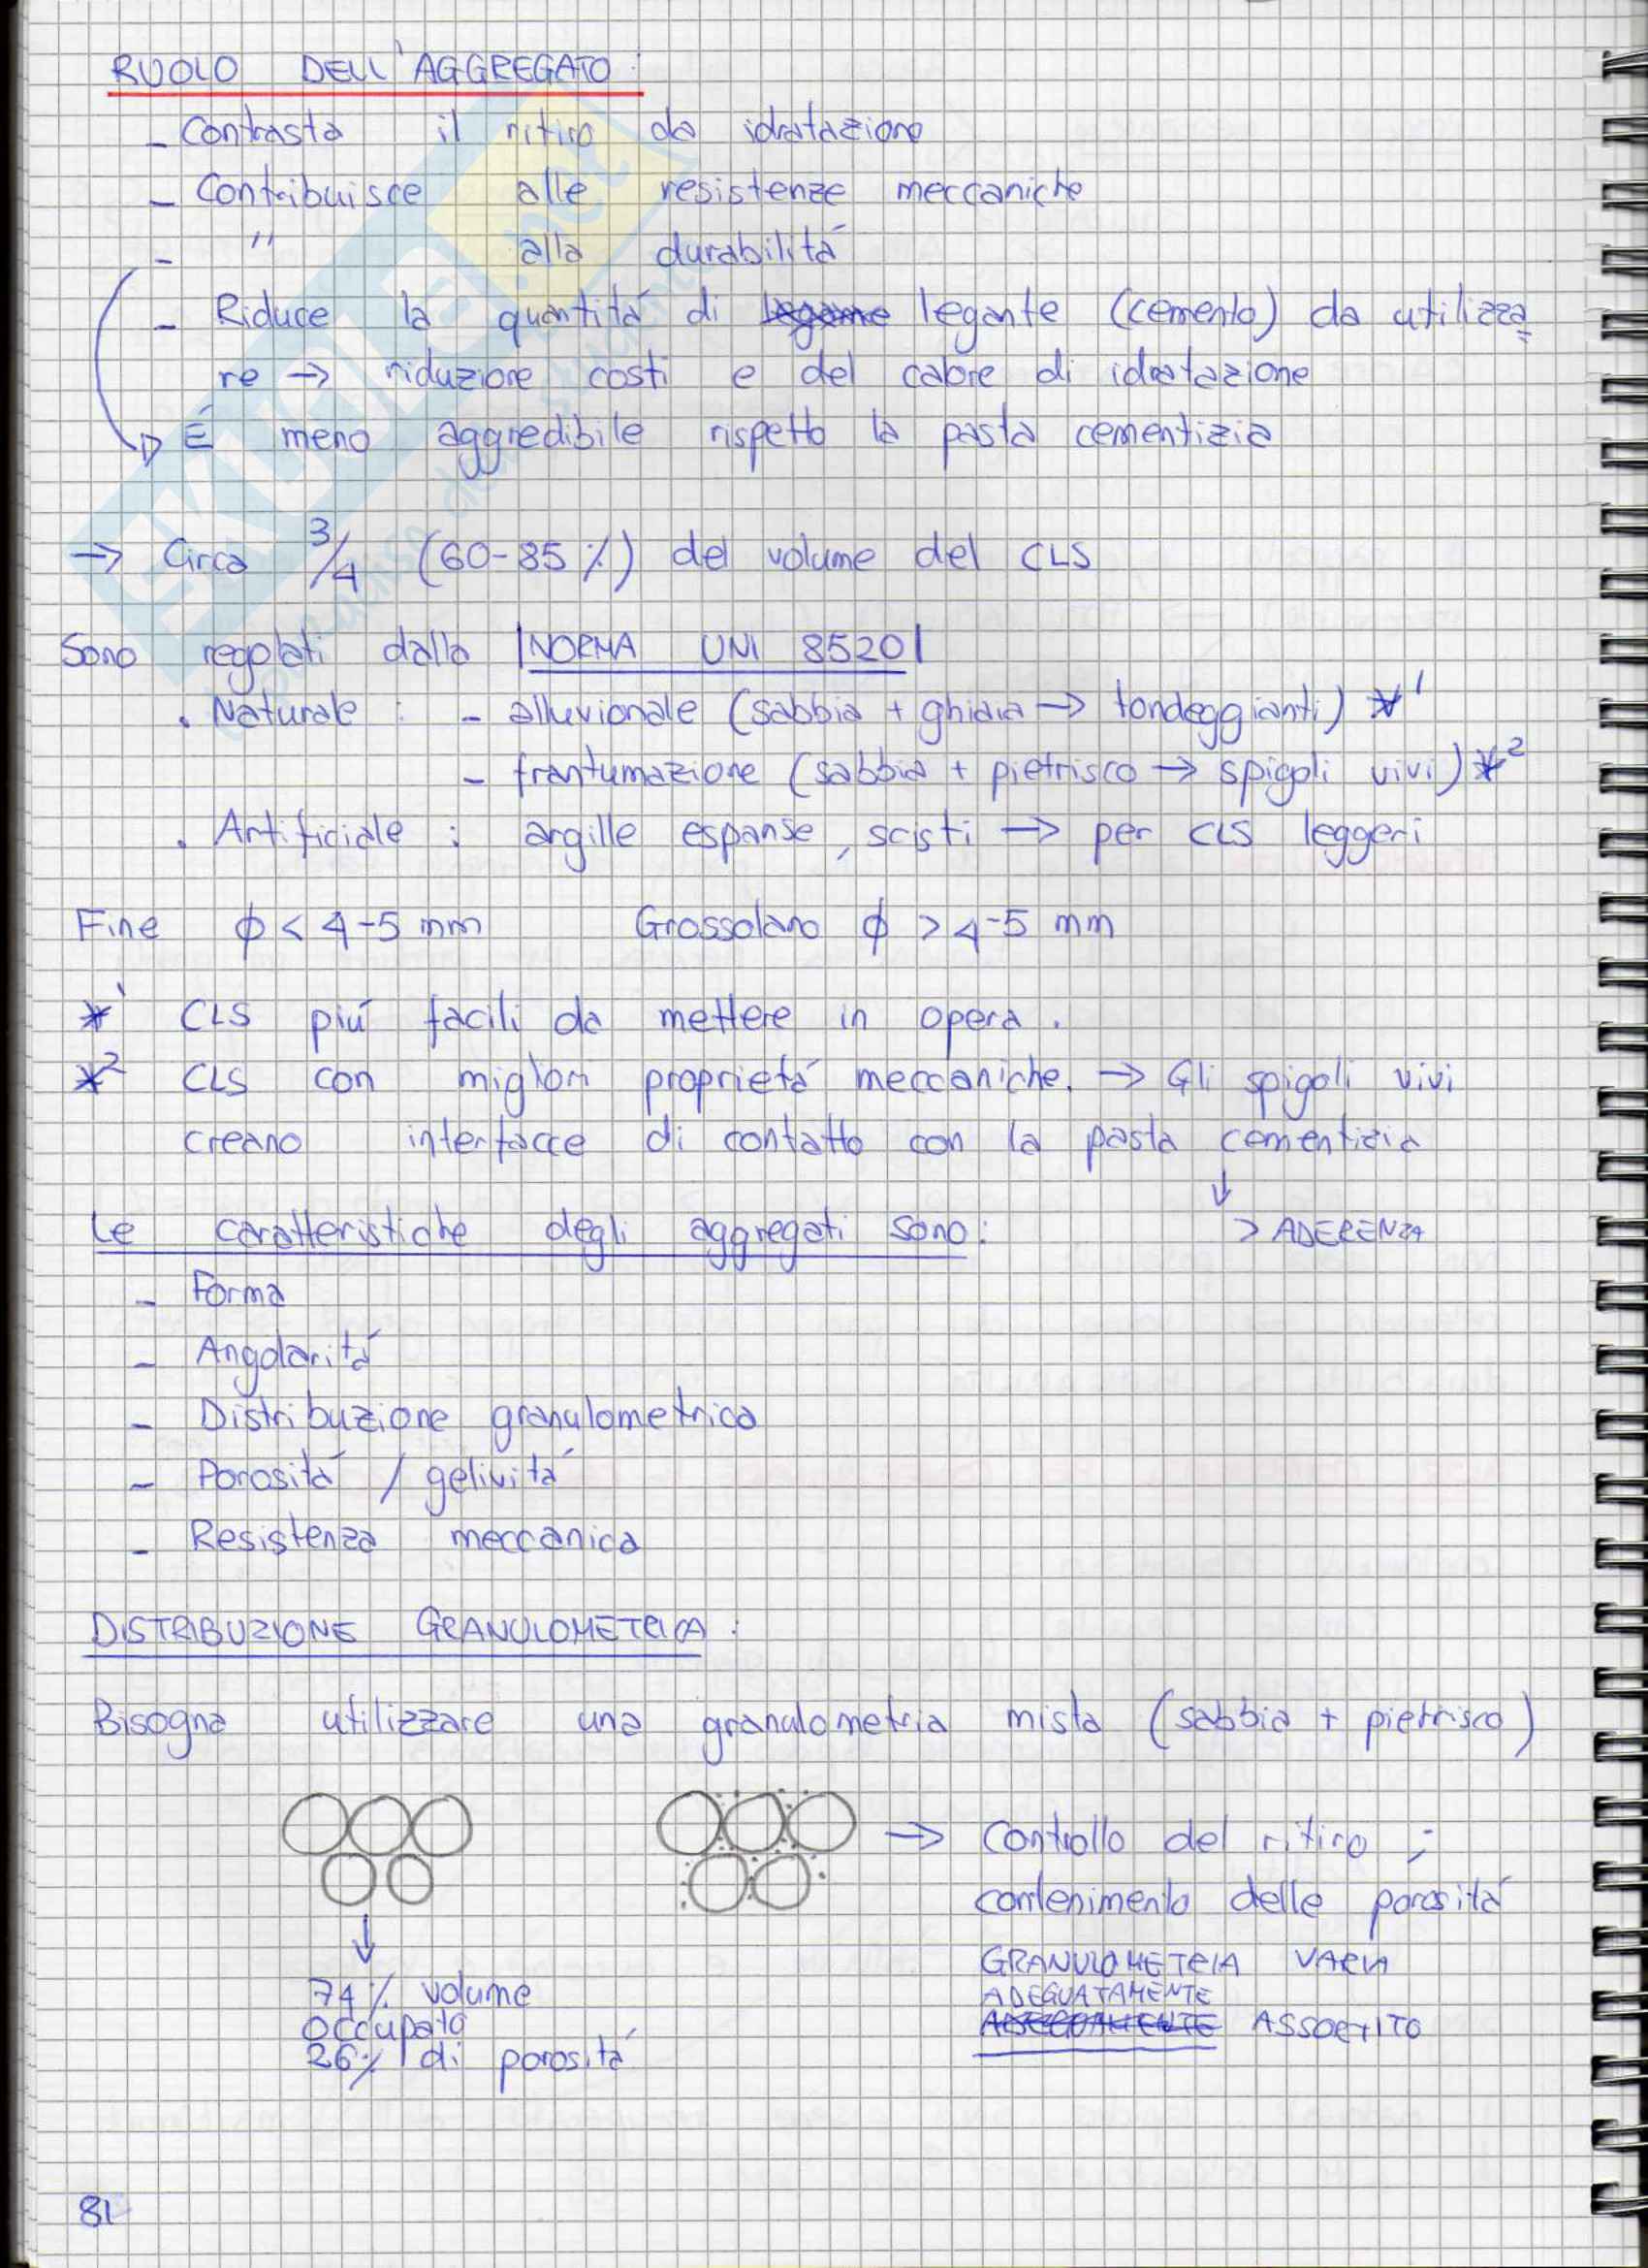 RUOLO DELL'AGGREGATO:
- Contrasta il ritiro da idratazione
- Contribuisce alle resistenze meccaniche
- " alla durabilitá
- Riduce la quantitá di legame legante (cemento) da utilizza
re → riduzione costi e del calore di idratazione
É meno aggredibile rispetto la pasta cementizia
→ Circa 3/4 (60-85%) del volume del CLS
Sono regolati dalla |NORMA UNI 8520|
. Naturale : - alluvionale (sabbia + ghiaia → tondeggianti) *1
- frantumazione (sabbia + pietrisco → spigoli vivi) *2
. Artificiale : argille espanse, scisti → per CLS leggeri
Fine ϕ < 4-5 mm Grossolano ϕ > 4-5 mm
*1 CLS piú facili da mettere in opera.
*2 CLS con migliori proprietá meccaniche. → Gli spigoli vivi
creano interfacce di contatto con la pasta cementizia
↓
> ADERENZA
Le caratteristiche degli aggregati sono:
- Forma
- Angolaritá
- Distribuzione granulometrica
- Porositá / gelivitá
- Resistenza meccanica
DISTRIBUZIONE GRANULOMETRICA :
Bisogna utilizzare una granulometria mista (sabbia + pietrisco)
→ Controllo del ritiro ;
contenimento delle porositá
↓
GRANULOMETRIA VARIA
74% volume
ADEGUATAMENTE
occupato
ASSORTITO
26% di porositá
81